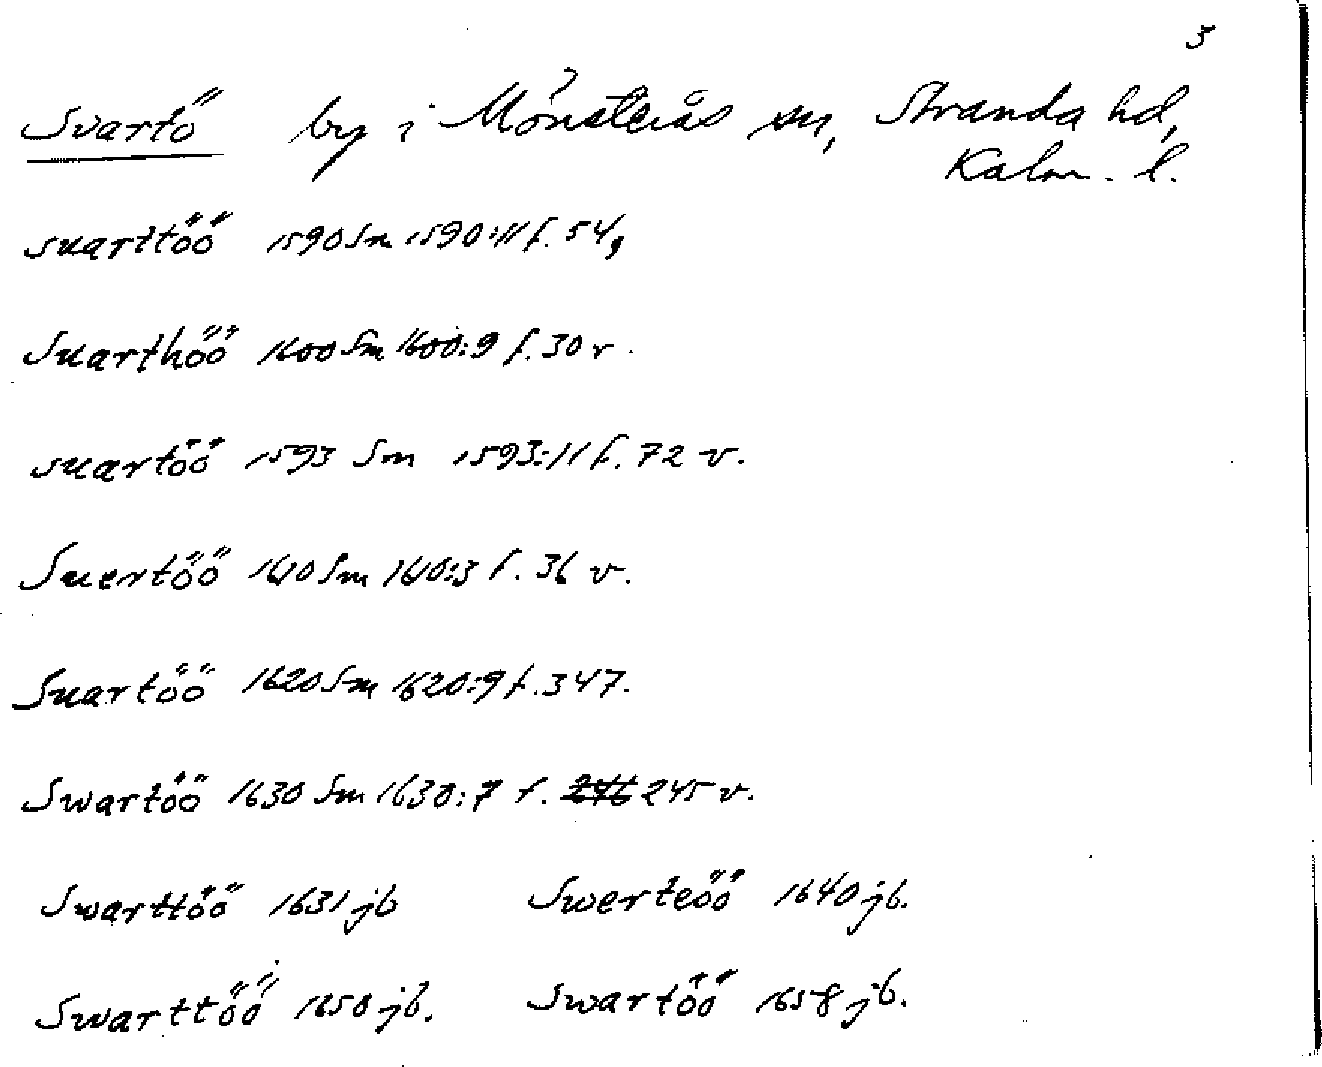 3
Svartö by i Mönsterås sn, Stranda hd,
Kalm. l.
suarttöö 1590 Sm 1590:11 f. 54,
Suarthöö 1600 Sm 1600:9 f. 30 r.
suartöö 1593 Sm 1593:11 f. 72 v.
Suertöö 1610 Sm 1610:3 f. 36 v.
Suartöö 1620 Sm 1620:9 f. 347.
Swartöö 1630 Sm 1630:7 f. 245 v.
Swarttöö 1631 jb Swerteöö 1640 jb.
Swarttöö 1650 jb. Swartöö 1658 jb.